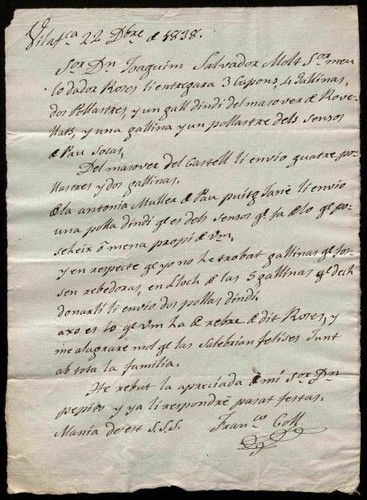 Vilafca 22 Dbre de 1818.
Sor. Dn. Joaquim Salvador Molt Sor. meu
lo dador Roses li entregara 3 Capons, 4 Gallinas,
dos Pollastres, y un gall dindi del masover de Rove-
llats, y una gallina y un pollastre dels sensos
de Pau Socas,
Del masover del Castell li envio quatre po-
llastres y dos gallinas.
de la Antonia Muller de Pau Puig Janè li envio
una polla dindi qe. es dels sensos qe. fa de lo qe. po-
seheix ô mena propi de Vm,
y en respecte qe. yo no he trobat gallinas qe. fos-
sen rebedoras, en lloch de las 5 gallinas qe. dech
donarli li envio dos pollas dindi.
axo es lo qe. Vm ha de rebrer de dit Roses, y
me alagrare mol qe. las Selebrian felises Junt
ab tota la familia.
He rebut la apreciada de mi Sor. Dn.
Pepito y ya li respondrè pasat festas.
Mania de est S.S.S. Franco. Coll